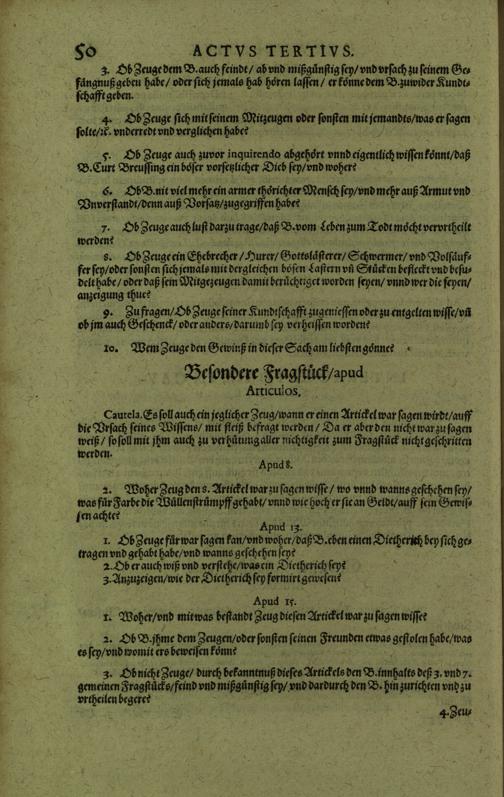 50 ACTVS TERTIVS.
3. Ob Zeuge dem B. auch feindt / ab vnd mißgünstig sey / vnd vrsach zu seinem Ge-
fängnuß geben habe / oder sich jemals hab hören lassen / er könne dem B. zuwider Kundt-
schafft geben.
4. Ob Zeuge sich mit seinem Mitzeugen oder sonsten mit jemandts / was er sagen
solte / ꝛc. vnderredt vnd verglichen habe?
5. Ob Zeuge auch zuvor inquirendo abgehört vnnd eigentlich wissen könnt / daß
B. Curt Breussing ein böser vorsetzlicher Dieb sey / vnd woher?
6. Ob B. nit viel mehr ein armer thörichter Mensch sey / vnd mehr auß Armut vnd
Vnverstandt / denn auß Vorsatz / zugegriffen habe?
7. Ob Zeuge auch lust darzu trage / daß B. vom Leben zum Todt möcht vervrtheilt
werden?
8. Ob Zeuge ein Ehebrecher / Hurer / Gottslästerer / Schwermer / vnd Volsäuf-
fer sey / oder sonsten sich jemals mit dergleichen bösen Lastern vñ Stücken befleckt vnd besu-
delt habe / oder daß sein Mitgezeugen damit berüchtiget worden seyen / vnnd wer die seyen /
anzeigung thue?
9. Zu fragen / Ob Zeuge seiner Kundtschafft zugeniessen oder zu entgelten wisse / vñ
ob jm auch Geschenck / oder anders / darumb sey verheissen worden?
10. Wem Zeuge den Gewinß in dieser Sach am liebsten gönne?
Besondere Fragstück / apud
Articulos,
Cautela. Es soll auch ein jeglicher Zeug / wann er einen Artickel war sagen wirdt / auff
die Vrsach seines Wissens / mit fleiß befragt werden / Da er aber den nicht war zu sagen
weiß / so soll mit jhm auch zu verhütung aller nichtigkeit zum Fragstück nicht geschritten
werden.
Apud 8.
2. Woher Zeug den 8. Artickel war zu sagen wisse / wo vnnd wanns geschehen sey /
was für Farbe die Wüllenstrümpff gehabt / vnnd wie hoch er sie an Geldt / auff sein Gewis-
sen achte?
Apud 13.
1. Ob Zeuge für war sagen kan / vnd woher / daß B. eben einen Dietherich bey sich ge-
tragen vnd gehabt habe / vnd wanns geschehen sey?
2. Ob er auch wiß vnd verstehe / was ein Dietherich sey?
3. Anzuzeigen / wie der Dietherich sey formirt gewesen?
Apud 15.
1. Woher / vnd mit was bestandt Zeug diesen Artickel war zu sagen wisse?
2. Ob B. jhme dem Zeugen / oder sonsten seinen Freunden etwas gestolen habe / was
es sey / vnd womit ers beweisen könne?
3. Ob nicht Zeuge / durch bekanntnuß dieses Artickels den B. innhalts deß 3. vnd 7.
gemeinen Fragstücks / feind vnd mißgünstig sey / vnd dardurch den B. hinzurichten vnd zu
vrtheilen begere?
4. Zeu-